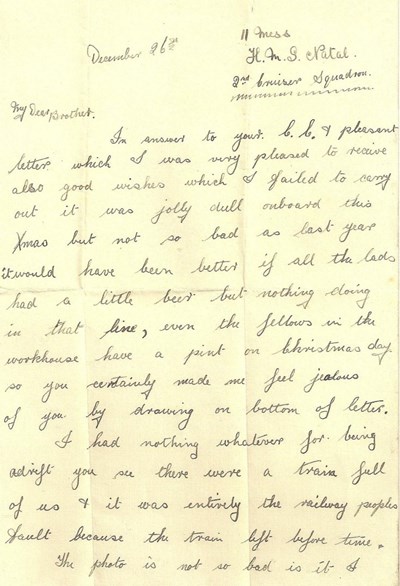 11 Mess
December 26th H.M.S. Natal.
2nd Cruiser Squadron.
My Dear Brother.
In answer to your C.C. & pleasant
letter which I was very pleased to receive
also good wishes which I failed to carry
out it was jolly dull onboard this
Xmas but not so bad as last year
it would have been better if all the lads
had a little beer but nothing doing
in that line, even the fellows in the
workhouse have a pint on Christmas day
so you certainly made me feel jealous
of you by drawing on bottom of letter.
I had nothing whatever for being
adrift you see there were a train full
of us & it was entirely the railway peoples
fault because the train left before time.
The photo is not so bad is it I